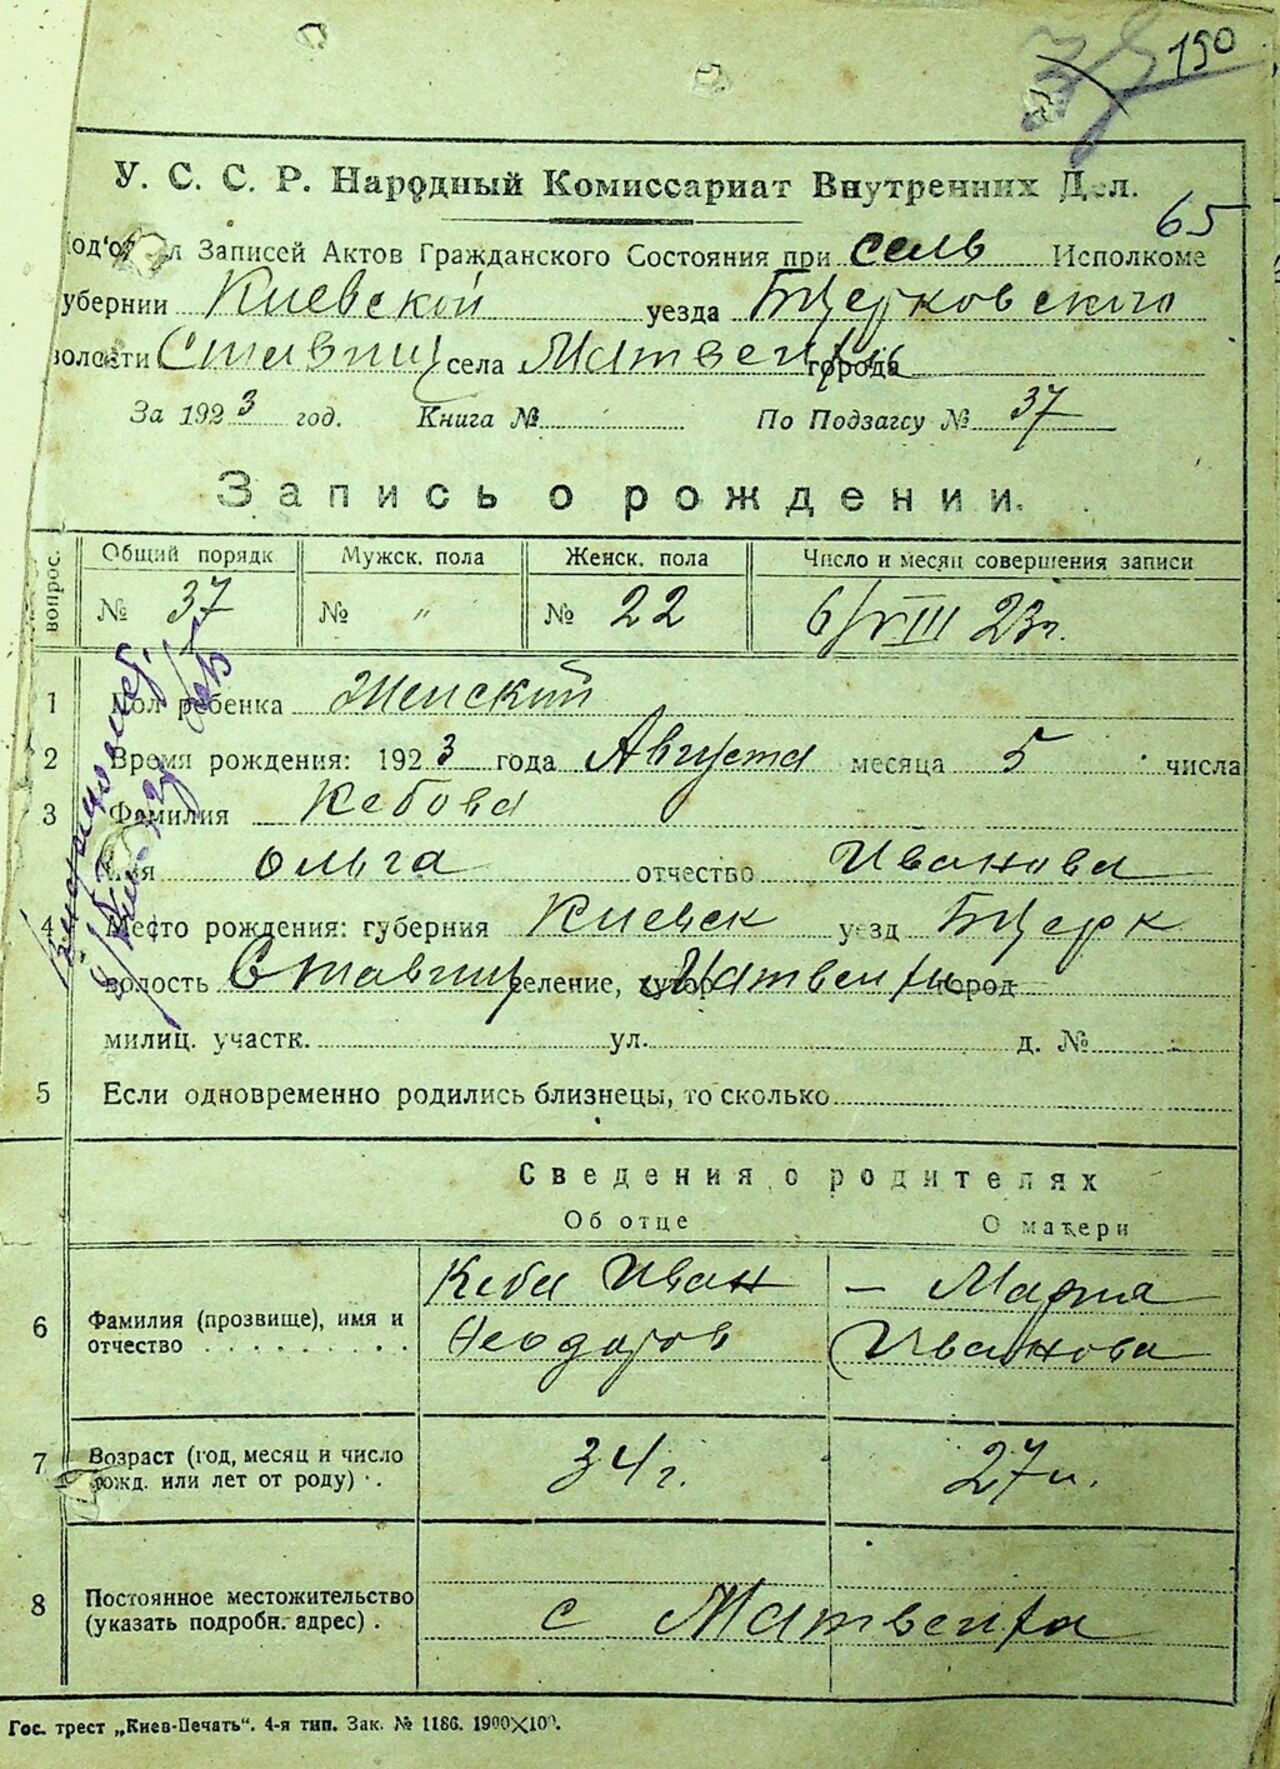 150
У. С. С. Р. Народный Комиссариат Внутренних Дел.
65
Записей Актов Гражданского Состояния при сель Исполкоме
убернии Киевской уезда БЦерковского
волости Ставищ села Матвеиха города
За 1923 год. Книга № По Подзагсу № 37
Запись о рождении.
вопрос. Общий порядк Мужск. пола Женск. пола Число и месяц совершения записи
№ 37 № " № 22 6/VIII 23г.
1 Пол ребенка Женский
2 Время рождения: 1923 года Августа месяца 5 числа
3 Фамилия Кебова
Имя Ольга отчество Иванова
4 Место рождения: губерния Киевск уезд БЦерк
волость Ставищ селение, хутор Матвеиха город
милиц. участк. ул. д. №
5 Если одновременно родились близнецы, то сколько
Сведения о родителях
Об отце О матери
6 Фамилия (прозвище), имя и Кеба Иван — Мария
отчество Феодоров Иванова
7 Возраст (год, месяц и число 34 г. 27 л.
рожд. или лет от роду) .
8 Постоянное местожительство
(указать подробн. адрес) . с Матвеиха
Гос. трест „Киев-Печать“. 4-я тип. Зак. № 1186. 1900×100.